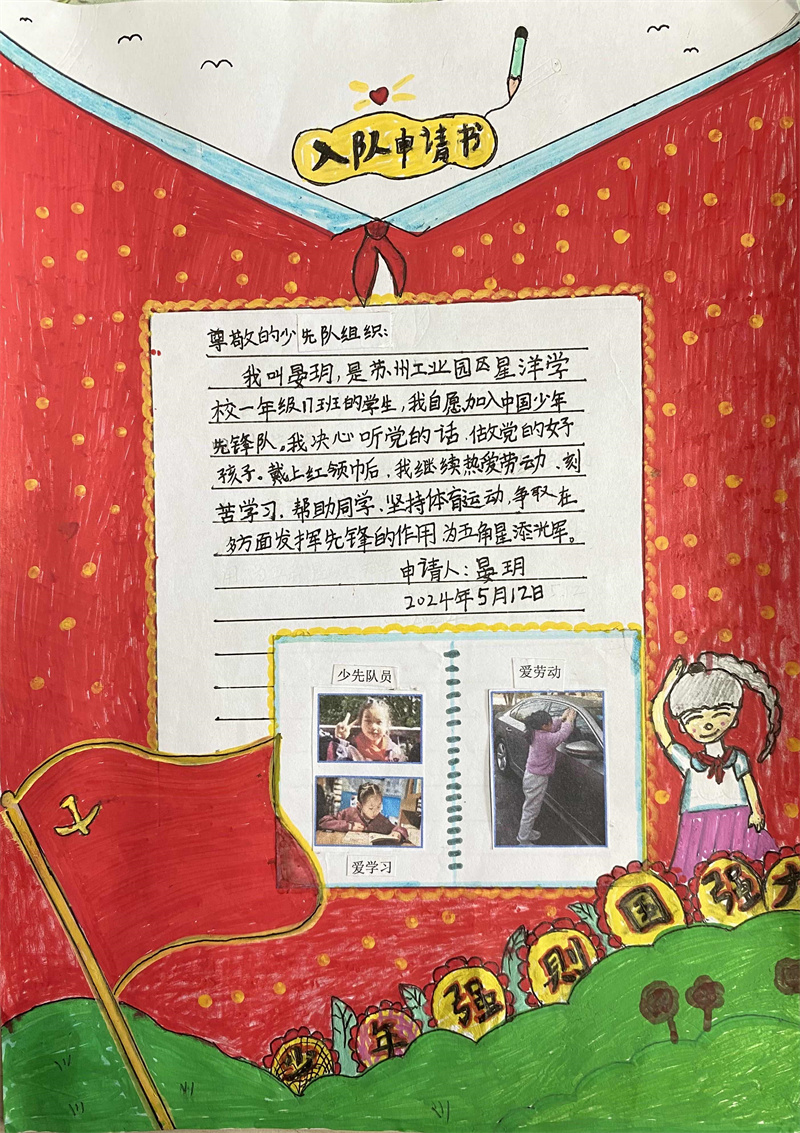 入队申请书
尊敬的少先队组织：
我叫晏玥，是苏州工业园区星洋学
校一年级17班的学生，我自愿加入中国少年
先锋队。我决心听党的话、做党的好
孩子。戴上红领巾后，我继续热爱劳动、刻
苦学习、帮助同学、坚持体育运动，争取在
多方面发挥先锋的作用为五角星添光辉。
申请人：晏玥
2024年5月12日
少先队员
爱学习
爱劳动
少年强则国强大